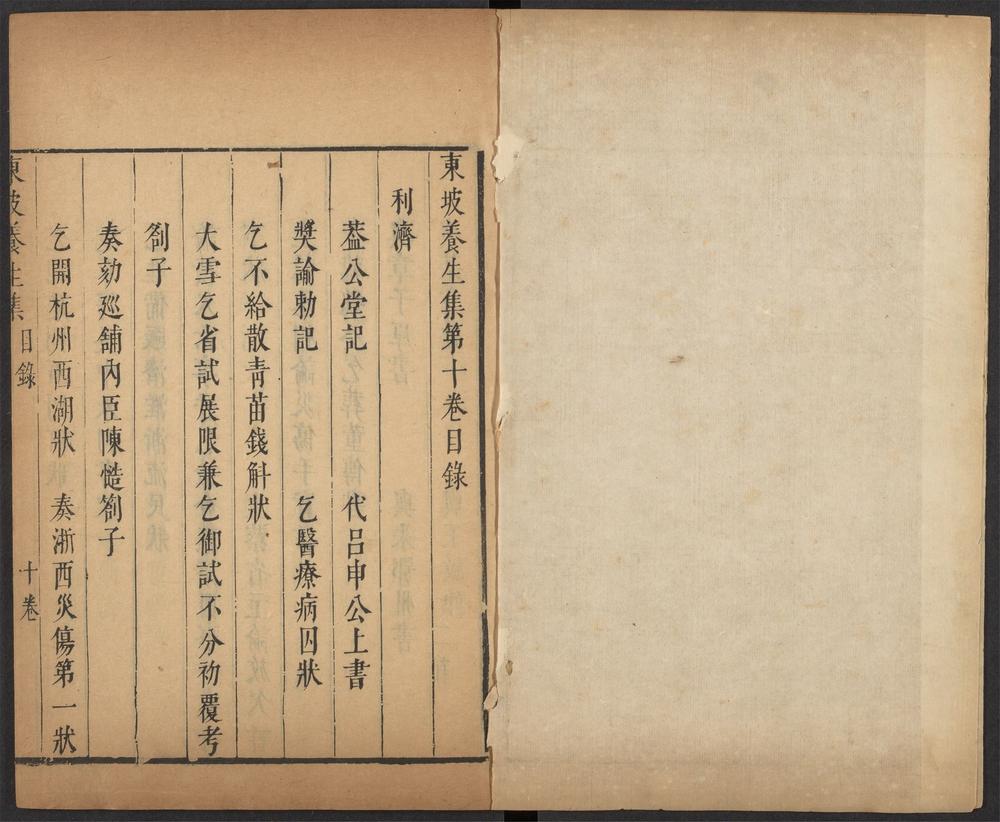 東坡養生集第十卷目錄
利濟
葢公堂記 代呂申公上書
奬諭勅記 乞醫療病囚狀
乞不給散靑苗錢斛狀
大雪乞省試展限兼乞御試不分初覆考
劄子
奏劾廵舖內臣陳慥劄子
乞開杭州西湖狀 奏浙西災傷第一狀
東坡養生集 目錄 十卷